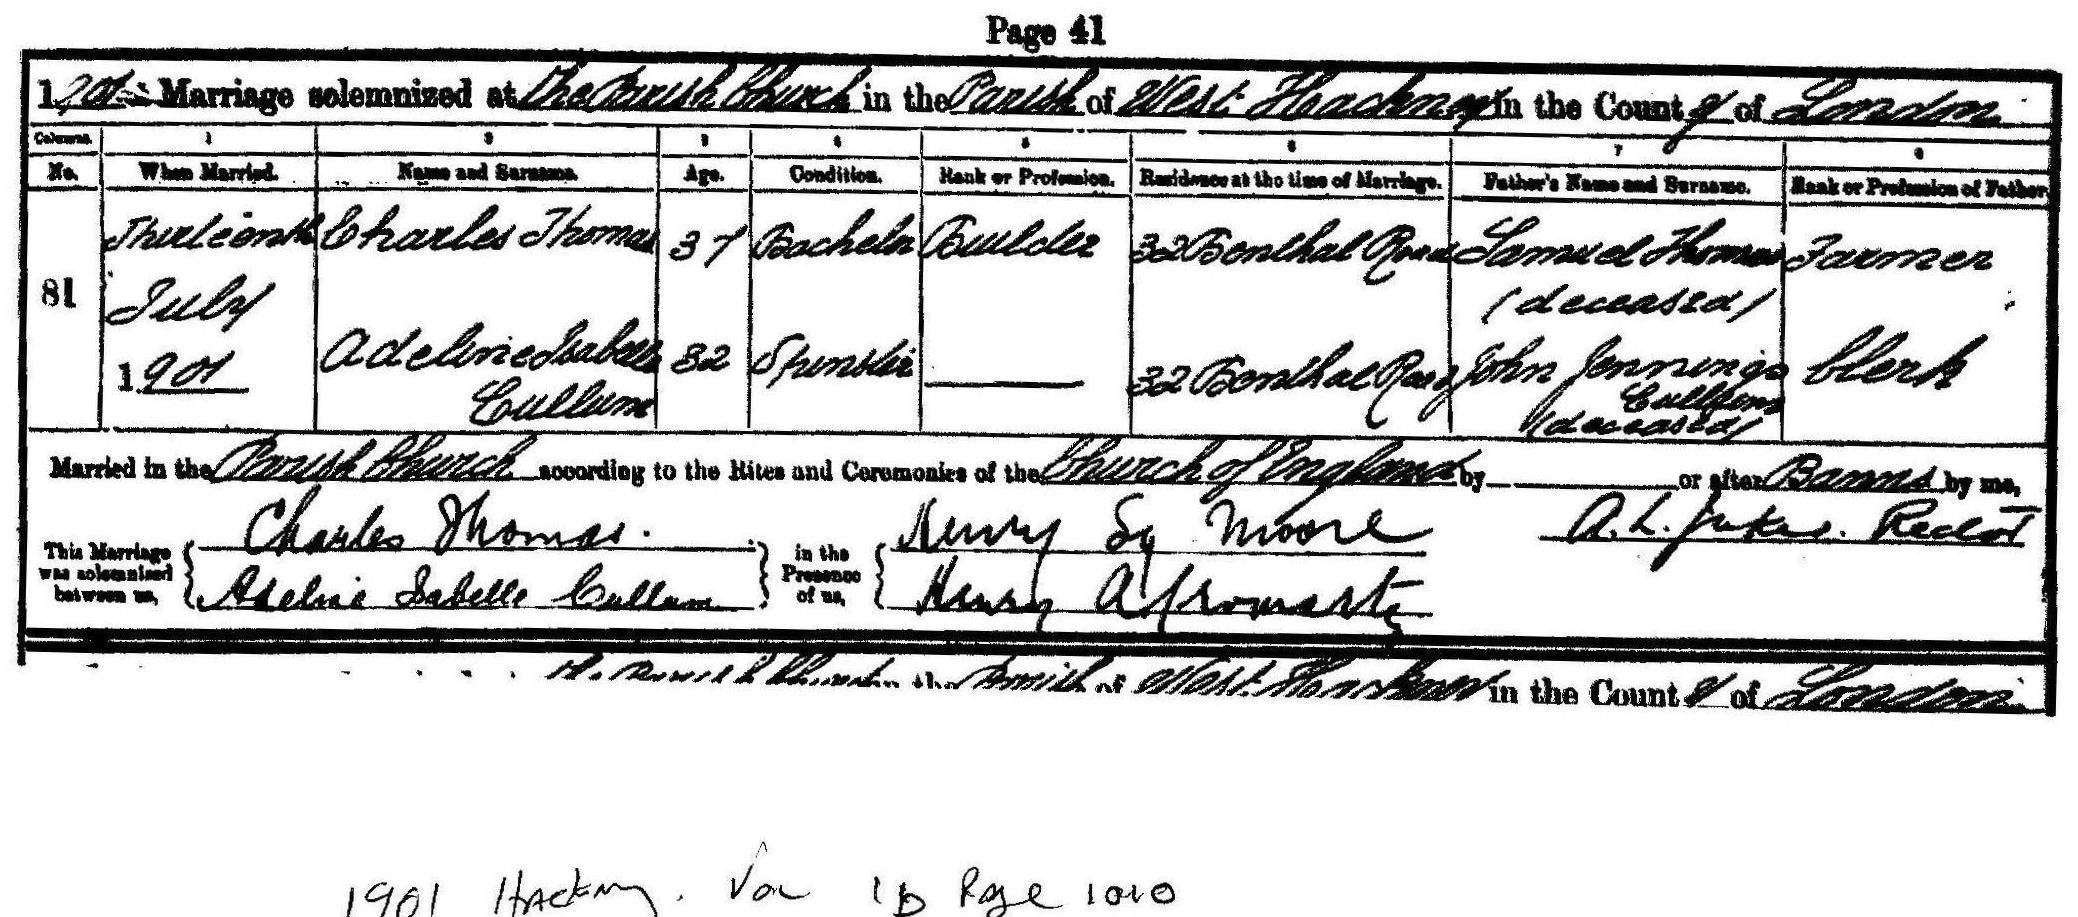 Page 41
1901 Marriage solemnized at The Parish Church in the Parish of West Hackney in the County of London
Columns. 1 2 3 4 5 6 7 8
No. When Married. Name and Surname. Age. Condition. Rank or Profession. Residence at the time of Marriage. Father's Name and Surname. Rank or Profession of Father.
81 Thirteenth July 1901 Charles Thomas 37 Bachelor Builder 32 Benthal Road Samuel Thomas (deceased) Farmer
Adeline Isabelle Cullum 32 Spinster 32 Benthal Road John Jennings Cullum (deceased) Clerk
Married in the Parish Church according to the Rites and Ceremonies of the Church of England by or after Banns by me,
Charles Thomas. Henry Moore A. L. Jukes. Rector
This Marriage was solemnized between us, in the Presence of us,
Adeline Isabelle Cullum Henry
The Parish Church in the Parish of West Hackney in the County of London
1901 Hackney. Vol 1D Page 1010